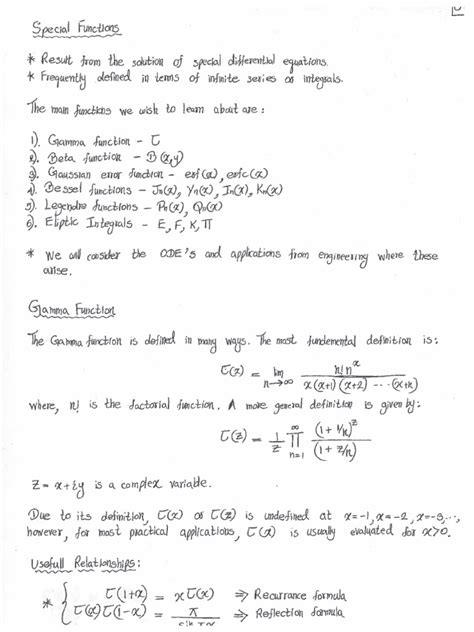 Special Functions
* Result from the solution of special differential equations.
* Frequently defined in terms of infinite series or integrals.
The main functions we wish to learn about are :
1). Gamma function - Γ
2). Beta function - B(x,y)
3). Gaussian error function - erf(x), erfc(x)
4). Bessel functions - Jn(x), Yn(x), In(x), Kn(x)
5). Legendre functions - Pn(x), Qn(x)
6). Eliptic Integrals - E, F, K, Π
* We will consider the ODE's and applications from engineering where these
arise.
Gamma Function
The Gamma function is defined in many ways. The most fundemental definition is :
Γ(x) = lim n→∞ n! n^x / x(x+1)(x+2) ---- (x+n)
where, n! is the factorial function. A more general definition is given by:
Γ(z) = 1/z ∏ n=1 ∞ (1 + 1/n)^z / (1 + z/n)
z = x+iy is a complex variable.
Due to its definition, Γ(x) or Γ(z) is undefined at x=-1, x=-2, x=-3,...,
however, for most practical applications, Γ(x) is usually evaluated for x>0.
Usefull Relationships:
* { Γ(1+x) = xΓ(x) ⇒ Recurrance formula
Γ(x)Γ(1-x) = π / sin πx ⇒ Reflection formula